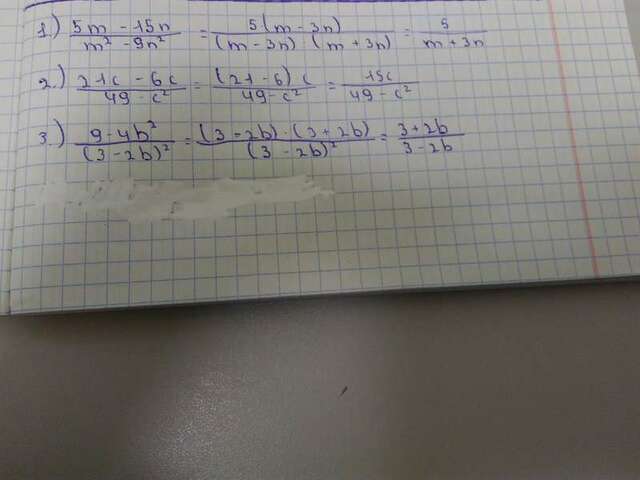 1.) 5m - 15n / m² - 9n² = 5(m - 3n) / (m - 3n) (m + 3n) = 5 / m + 3n
2.) 21c - 6c / 49 - c² = (21 - 6) c / 49 - c² = 15c / 49 - c²
3.) 9 - 4b² / (3 - 2b)² = (3 - 2b) · (3 + 2b) / (3 - 2b)² = 3 + 2b / 3 - 2b